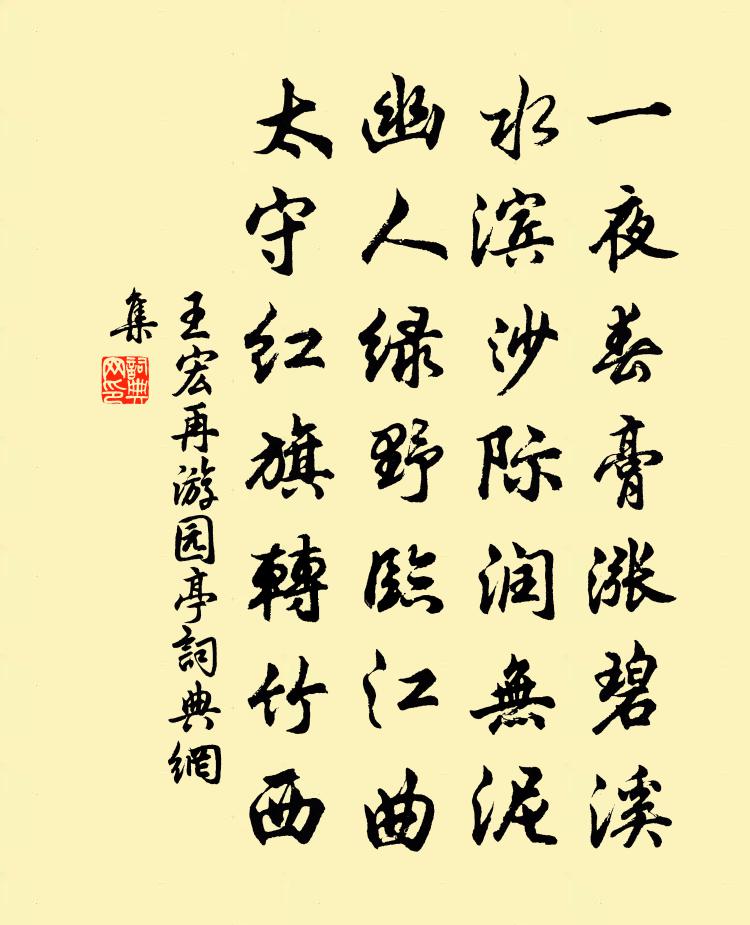 一夜春膏漲碧溪
水滨沙际润無泥
幽人绿野臨江曲
太守红旗轉竹西
王宏再游园亭詞典網
集
詞典网印